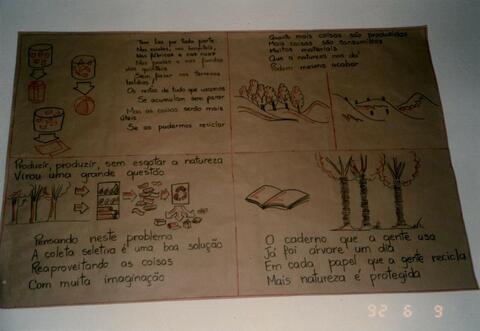 Tem lixo por toda parte
Nas escolas, nos hospitais,
Nas fábricas e nas ruas
Nas praias e nos fundos
dos quintais
Sem falar nos terrenos
baldios!
Os restos de tudo que usamos
Se acumulam sem parar
Mas as coisas serão mais
úteis
Se as pudermos reciclar
Quanto mais coisas são produzidas
Mais coisas são consumidas
Muitos materiais
Que a natureza nos dá
Podem mesmo acabar
Produzir, produzir, sem esgotar a natureza
Virou uma grande questão
Pensando neste problema
A coleta seletiva é uma boa solução
Reaproveitando as coisas
Com muita imaginação
O caderno que a gente usa
Já foi árvore um dia
Em cada papel que a gente recicla
Mais natureza é protegida
92 6 9